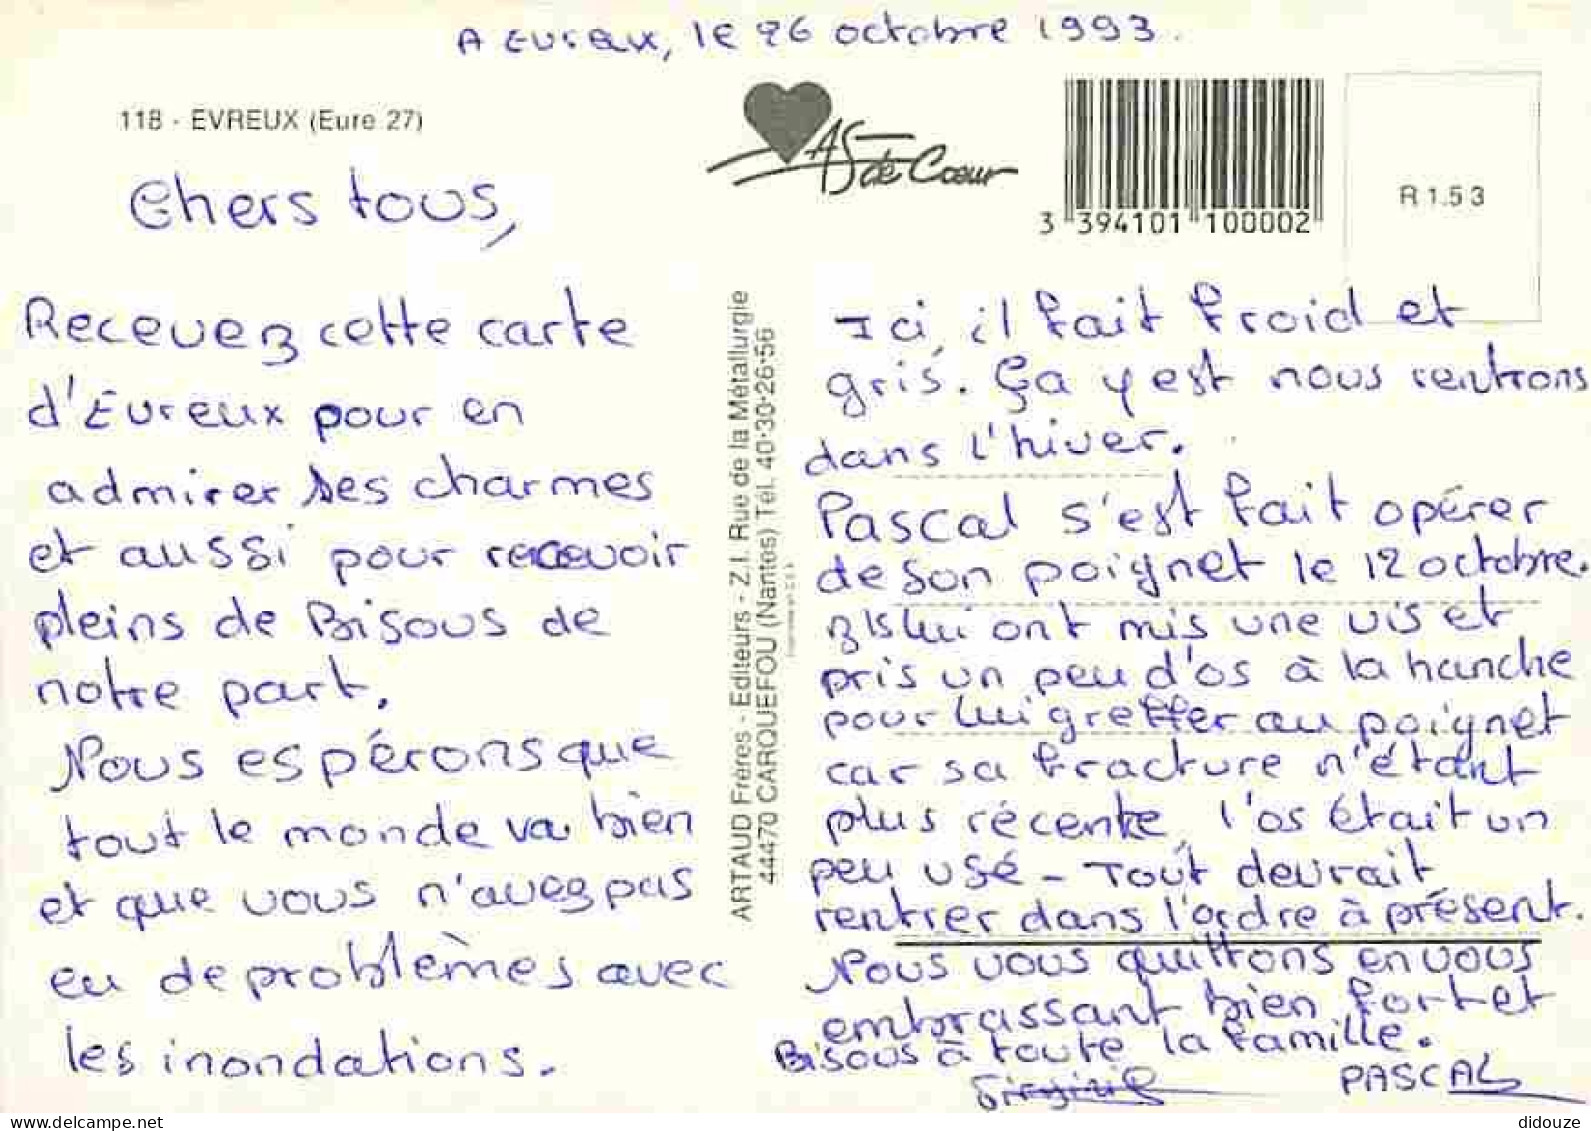 A Evreux, le 26 octobre 1993.
118 - EVREUX (Eure 27)
AS de Cœur
3 394101 100002
R 1.53
Chers tous,
Recevez cette carte
d'Evreux pour en
admirer ses charmes
et aussi pour recevoir
pleins de Bisous de
notre part.
Nous espérons que
tout le monde va bien
et que vous n'avez pas
eu de problèmes avec
les inondations.
ARTAUD Frères - Editeurs - Z.I. Rue de la Métallurgie
44470 CARQUEFOU (Nantes) Tél. 40·30·26·56
Ici, il fait froid et
gris. Ça y est nous rentrons
dans l'hiver.
Pascal s'est fait opérer
de son poignet le 12 octobre.
Ils lui ont mis une vis et
pris un peu d'os à la hanche
pour lui greffer au poignet
car sa fracture n'étant
plus récente, l'os était un
peu usé - Tout devrait
rentrer dans l'ordre à présent.
Nous vous quittons en vous
embrassant bien fort et
Bisous à toute la famille.
Virginie PASCAL
didouze